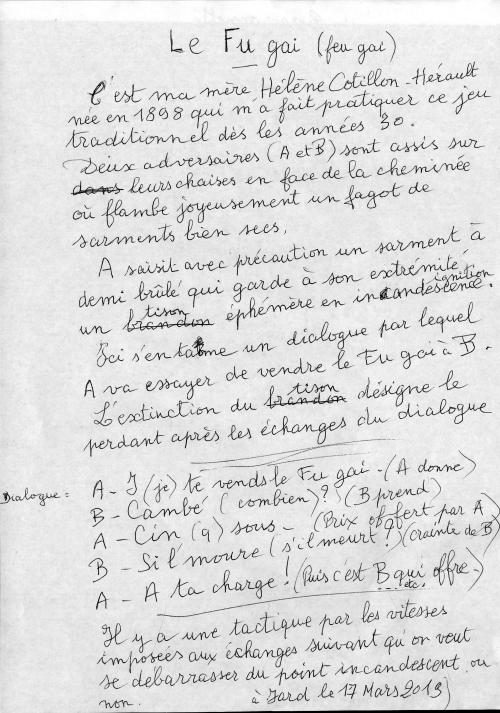 Le Fu gai (feu gai)
C'est ma mère Hélène Cotillon-Hérault
née en 1898 qui m'a fait pratiquer ce jeu
traditionnel dès les années 30.
Deux adversaires (A et B) sont assis sur
dans leurs chaises en face de la cheminée
où flambe joyeusement un fagot de
sarments bien secs.
A saisit avec précaution un sarment à
demi brûlé qui garde à son extrémité
ignition
tison
un brandon éphémère en incandescence.
Ici s'entame un dialogue par lequel
A va essayer de vendre le Fu gai à B.
tison
L'extinction du brandon désigne le
perdant après les échanges du dialogue
Dialogue :
A - J (je) te vends le Fu gai - (A donne)
B - Cambé (combien)? (B prend)
A - Cin (q) sous - (Prix offert par A)
B - Si l'moure (s'il meurt?) (crainte de B)
A - A ta charge! (Puis c'est B qui offre -)
etc.
Il y a une tactique par les vitesses
imposées aux échanges suivant qu'on veut
se débarrasser du point incandescent ou
non. à Jard le 17 Mars 2013)